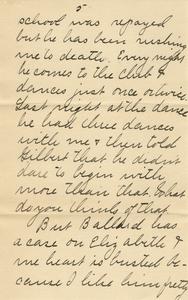 5
school was repayed
but he has been rushing
me to death. Every night
he comes to the club &
dances just once or twice.
Last night at the dance
he had three dances
with me & then told
Gilbert that he didn't
dare to begin with
more than that. What
do you think of that.
But Ballard has
a case on Elizabeth &
me heart is busted be-
cause I like him pretty